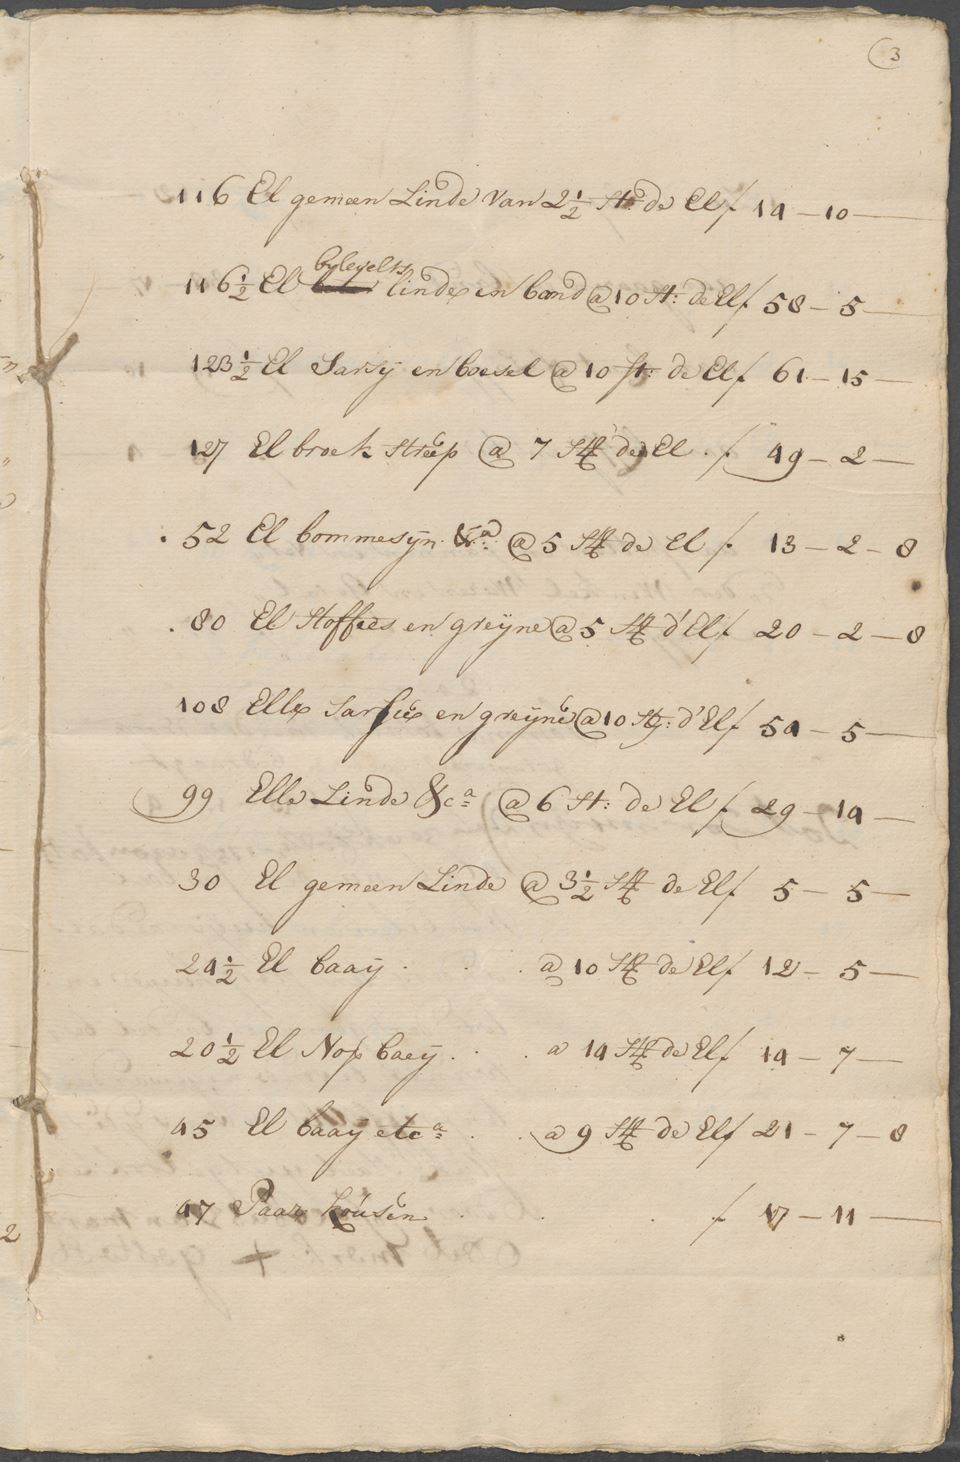 3
116 El gemeen Linde van 2½ St: de El f 14 – 10 –
bylevelts
116½ El linde en band @ 10 St: de El f 58 – 5 –
123½ El Sarsÿ en boesel @ 10 st: de El f 61 – 15 –
127 El broek streep @ 7 St: de El . f 49 – 2 –
52 El bommesÿn &a @ 5 St: de El f 13 – 2 – 8
80 El Stoffees en greÿne @ 5 St: d'El f 20 – 2 – 8
108 Elle Sarsie en greÿne @ 10 St: d'El f 54 – 5 –
99 Elle Linde &ca @ 6 St: de El f 29 – 14 –
30 El gemeen Linde @ 3½ St: de El f 5 – 5 –
24½ El baaÿ . . . @ 10 St: de El f 12 – 5 –
20½ El Nop baeÿ . . . a 14 St: de El f 14 – 7 –
45 El baaÿ etca . . @ 9 St: de El f 21 – 7 – 8
47 Paar kousen . . . f 17 – 11 –
2